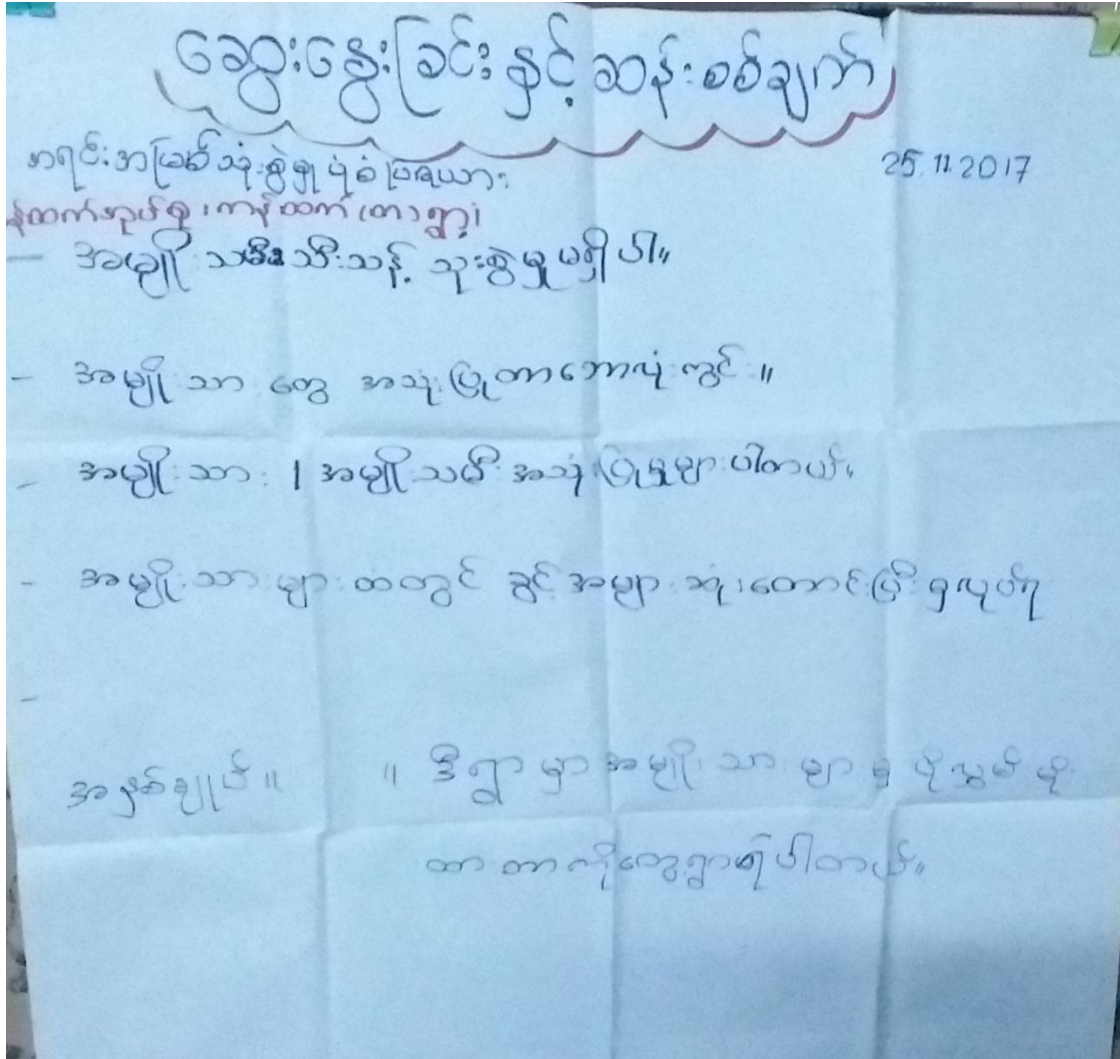 ဆွေးနွေးခြင်းနှင့်ဆန်းစစ်ချက်
အရင်းအမြစ်သုံးစွဲမှုပုံစံပြဇယား
25.11.2017
ကန်ထက် (တာရွာ)
- အမျိုးသမီးသီးသန့် သုးစွဲမှုမရှိပါ။
- အမျိုးသားတွေ အသုံးပြုတာဘောလုံးကွင်း။
- အမျိုးသား / အမျိုးသမီး အသုံးပြုမှုများပါတယ်။
- အမျိုးသားများထဲတွင် ခွင့်အများဆုံးတောင်းပြီး
-
အနှစ်ချုပ်။ ။ ဒီရွာမှာအမျိုးသားများ
ထားတာကိုတွေ့ရှာရပါတယ်။